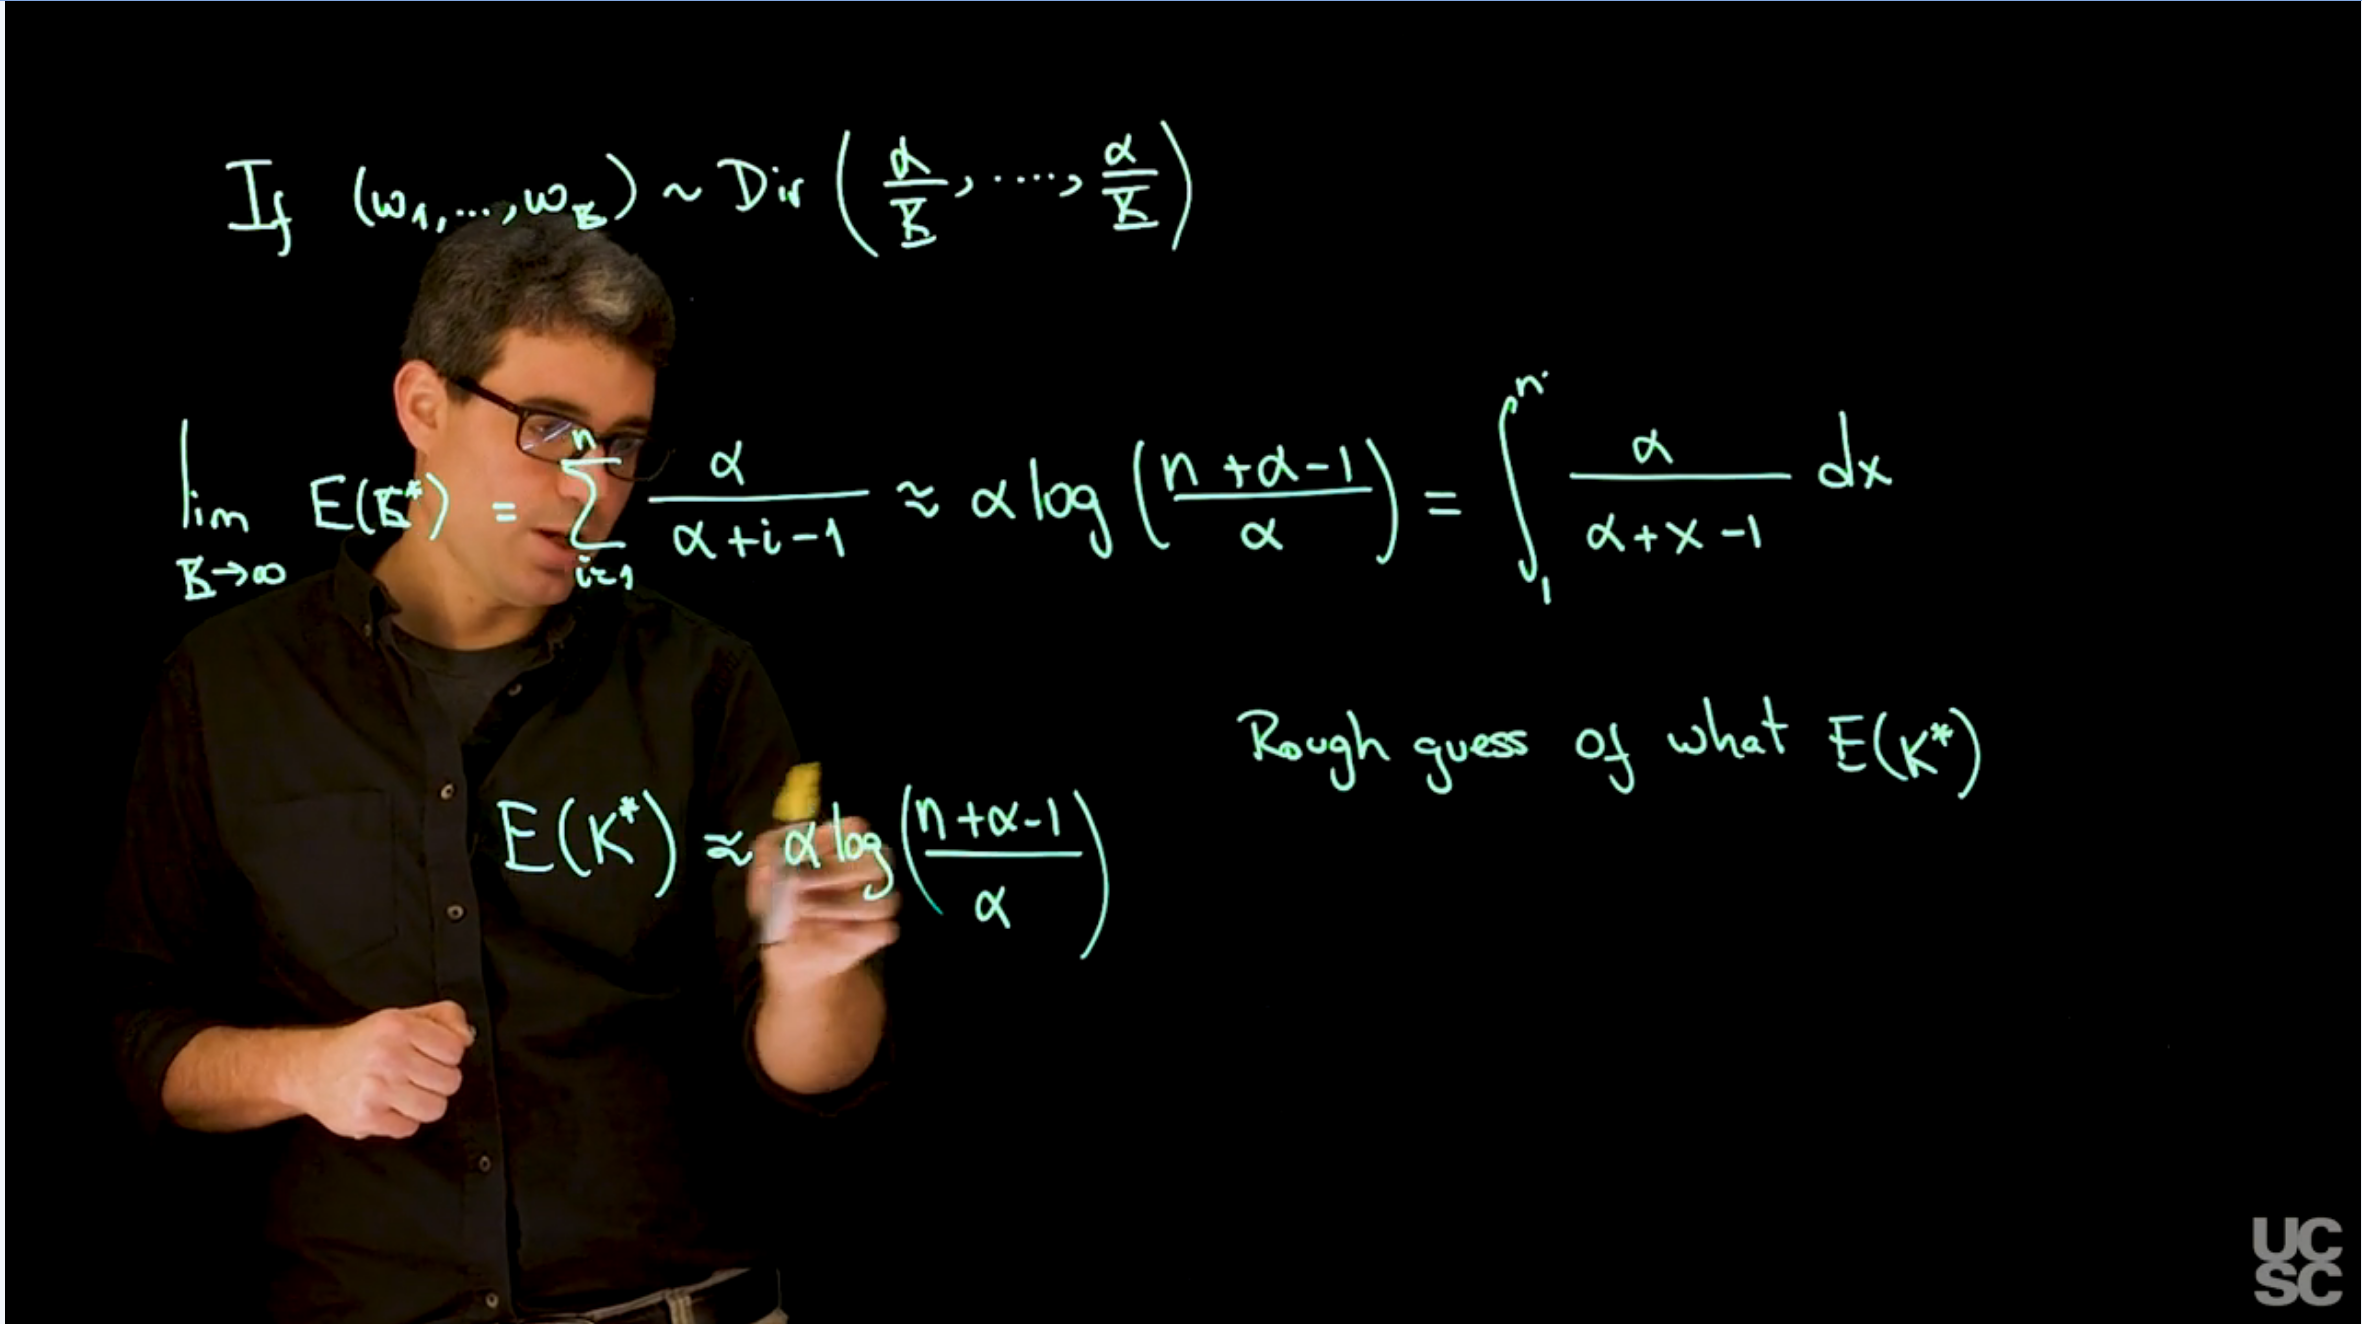 If (ω₁,...,ω_K) ~ Dir (α/K, ....., α/K)
lim_{K→∞} E(K*) = Σ_{i=1}^{n} α/(α+i-1) ≈ α log((n+α-1)/α) = ∫_1^n α/(α+x-1) dx
Rough guess of what E(K*)
E(K*) ≈ α log((n+α-1)/α)
UC
SC